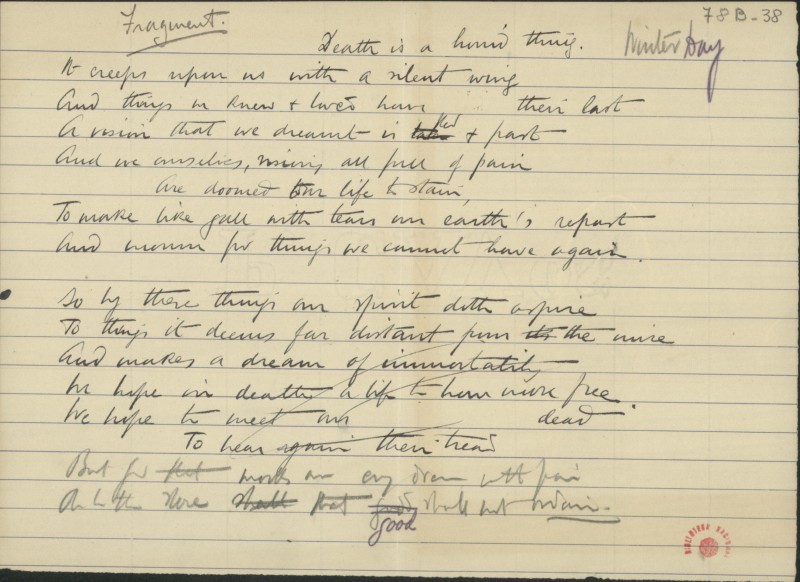 78B-38
Fragment.
Winter Day
Death is a horrid thing.
It creeps upon us with a silent wing
And things we knew & loved have their last
A vision that we dreamt is fled & past
And we ourselves, all full of pain
Are doomed our life to stain,
To make like gall with tears our earth's repast
And mourn for things we cannot have again.
So by these things our spirit doth aspire
To things it deems far distant from its the mire
And makes a dream of immortality
We hope in death a life to horn more free.
We hope to meet our dead
To hear again their tread
But for that our dream with pain
the shore shall that shall not
good
BIBLIOTECA NACIONAL